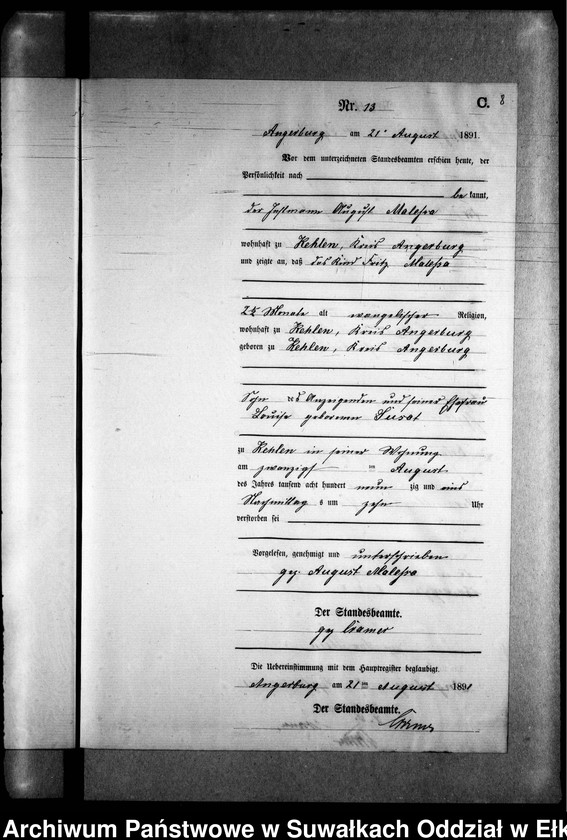 C. 8
Nr. 13
Angerburg am 21. August 1891.
Vor dem unterzeichneten Standesbeamten erschien heute, der
Persönlichkeit nach
be kannt,
der Instmann August Malessa
wohnhaft zu Kehlen, Kreis Angerburg
und zeigte an, daß das Kind Fritz Malessa
2½ Monate alt evangelischer Religion,
wohnhaft zu Kehlen, Kreis Angerburg
geboren zu Kehlen, Kreis Angerburg
Sohn des Anzeigenden und seiner Ehefrau
Louise geborenen
zu Kehlen in seiner Wohnung
am zwanzigsten August
des Jahres tausend acht hundert neun zig und eins
Nachmittag s um zehn Uhr
verstorben sei
Vorgelesen, genehmigt und unterschrieben
gez. August Malessa
Der Standesbeamte.
gez Cramer
Die Uebereinstimmung mit dem Hauptregister beglaubigt.
Angerburg am 21ten August 1891
Der Standesbeamte.
Cramer
Archiwum Państwowe w Suwałkach Oddział w Ełk